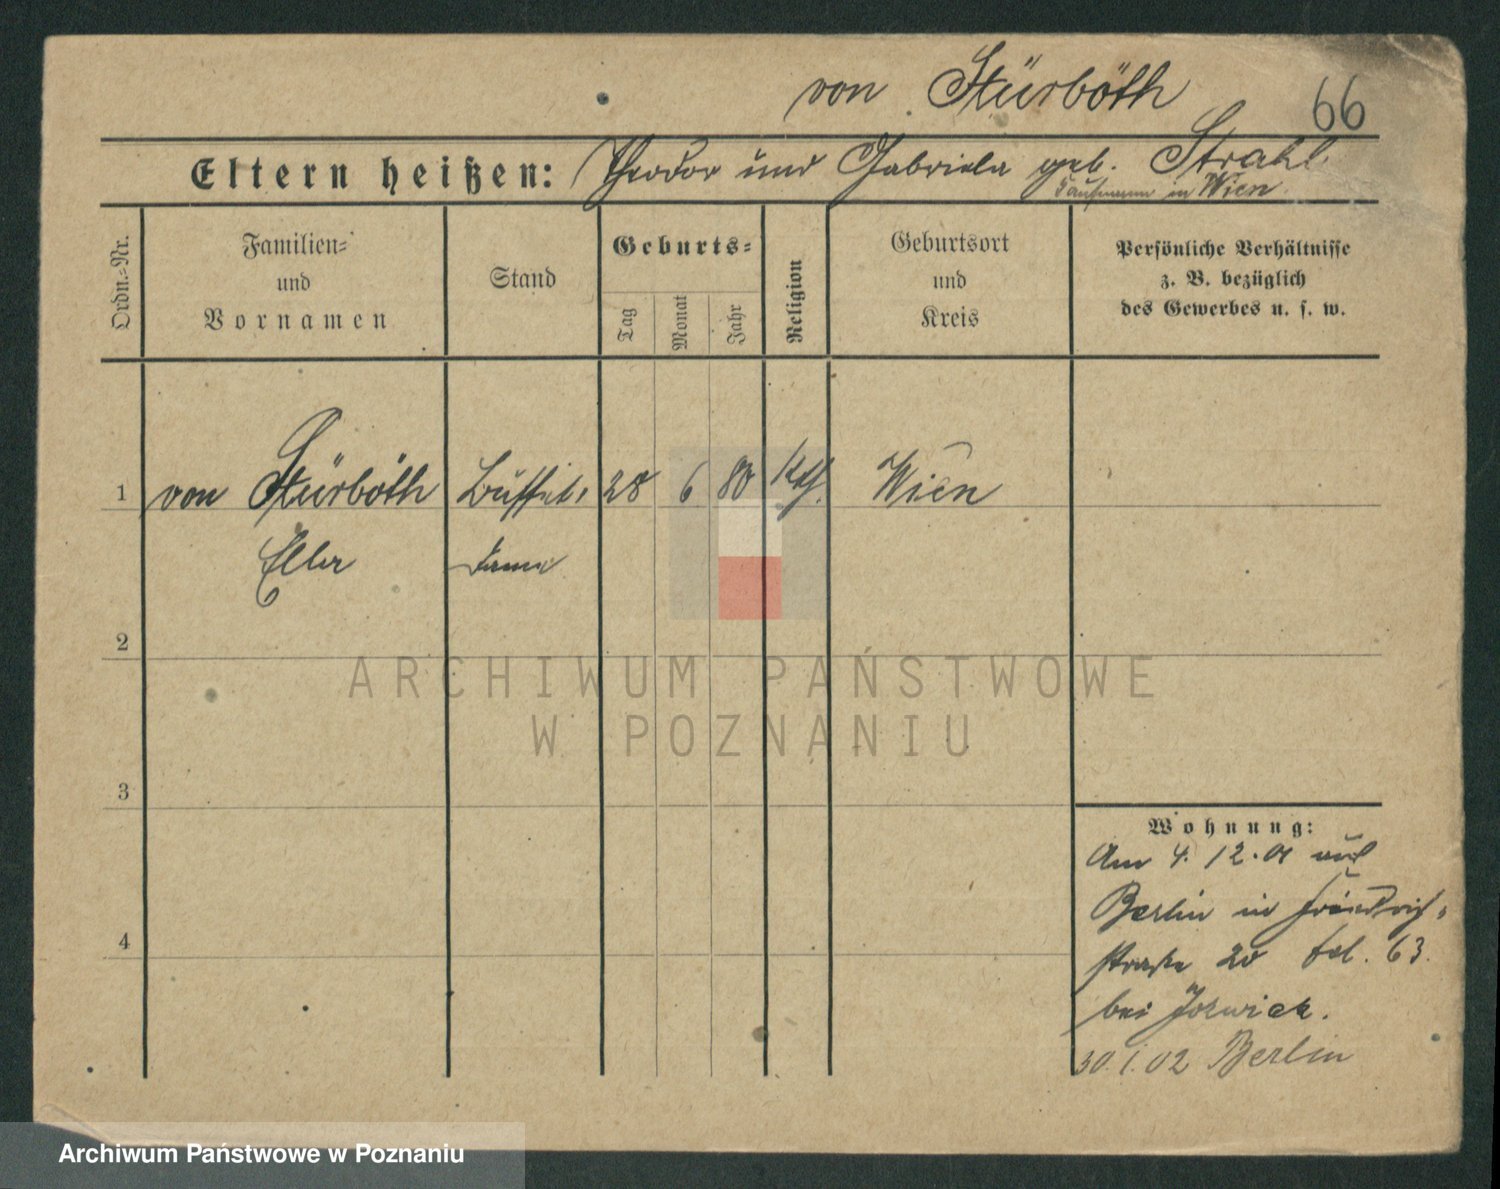 von Stürböth 66
Eltern heißen: Theodor und Gabriela geb. Strahl
Kaufmann in Wien.
Ordn.=Nr.
Familien=
und
Vornamen
Stand
Geburts=
Tag
Monat
Jahr
Religion
Geburtsort
und
Kreis
Persönliche Verhältnisse
z. B. bezüglich
des Gewerbes u. s. w.
1 von Stürböth Büffet= 28 6 80 Kth. Wien
Ella Dame
2
3
4
Wohnung:
Am 4. 12. 01 aus
Berlin in Friedrich=
straße 20 bei
30. 1. 02 Berlin
ARCHIWUM PAŃSTWOWE
W POZNANIU
Archiwum Państwowe w Poznaniu